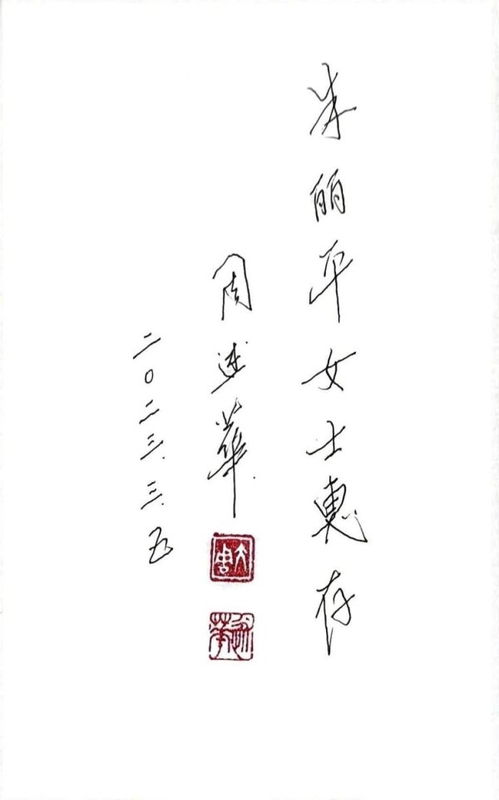 朱丽平女士惠存
周述华
二〇二三.三.五